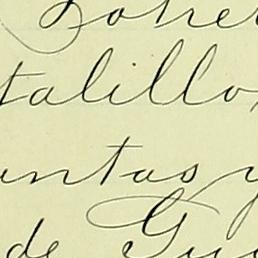 talillo,
untas y
de Gu